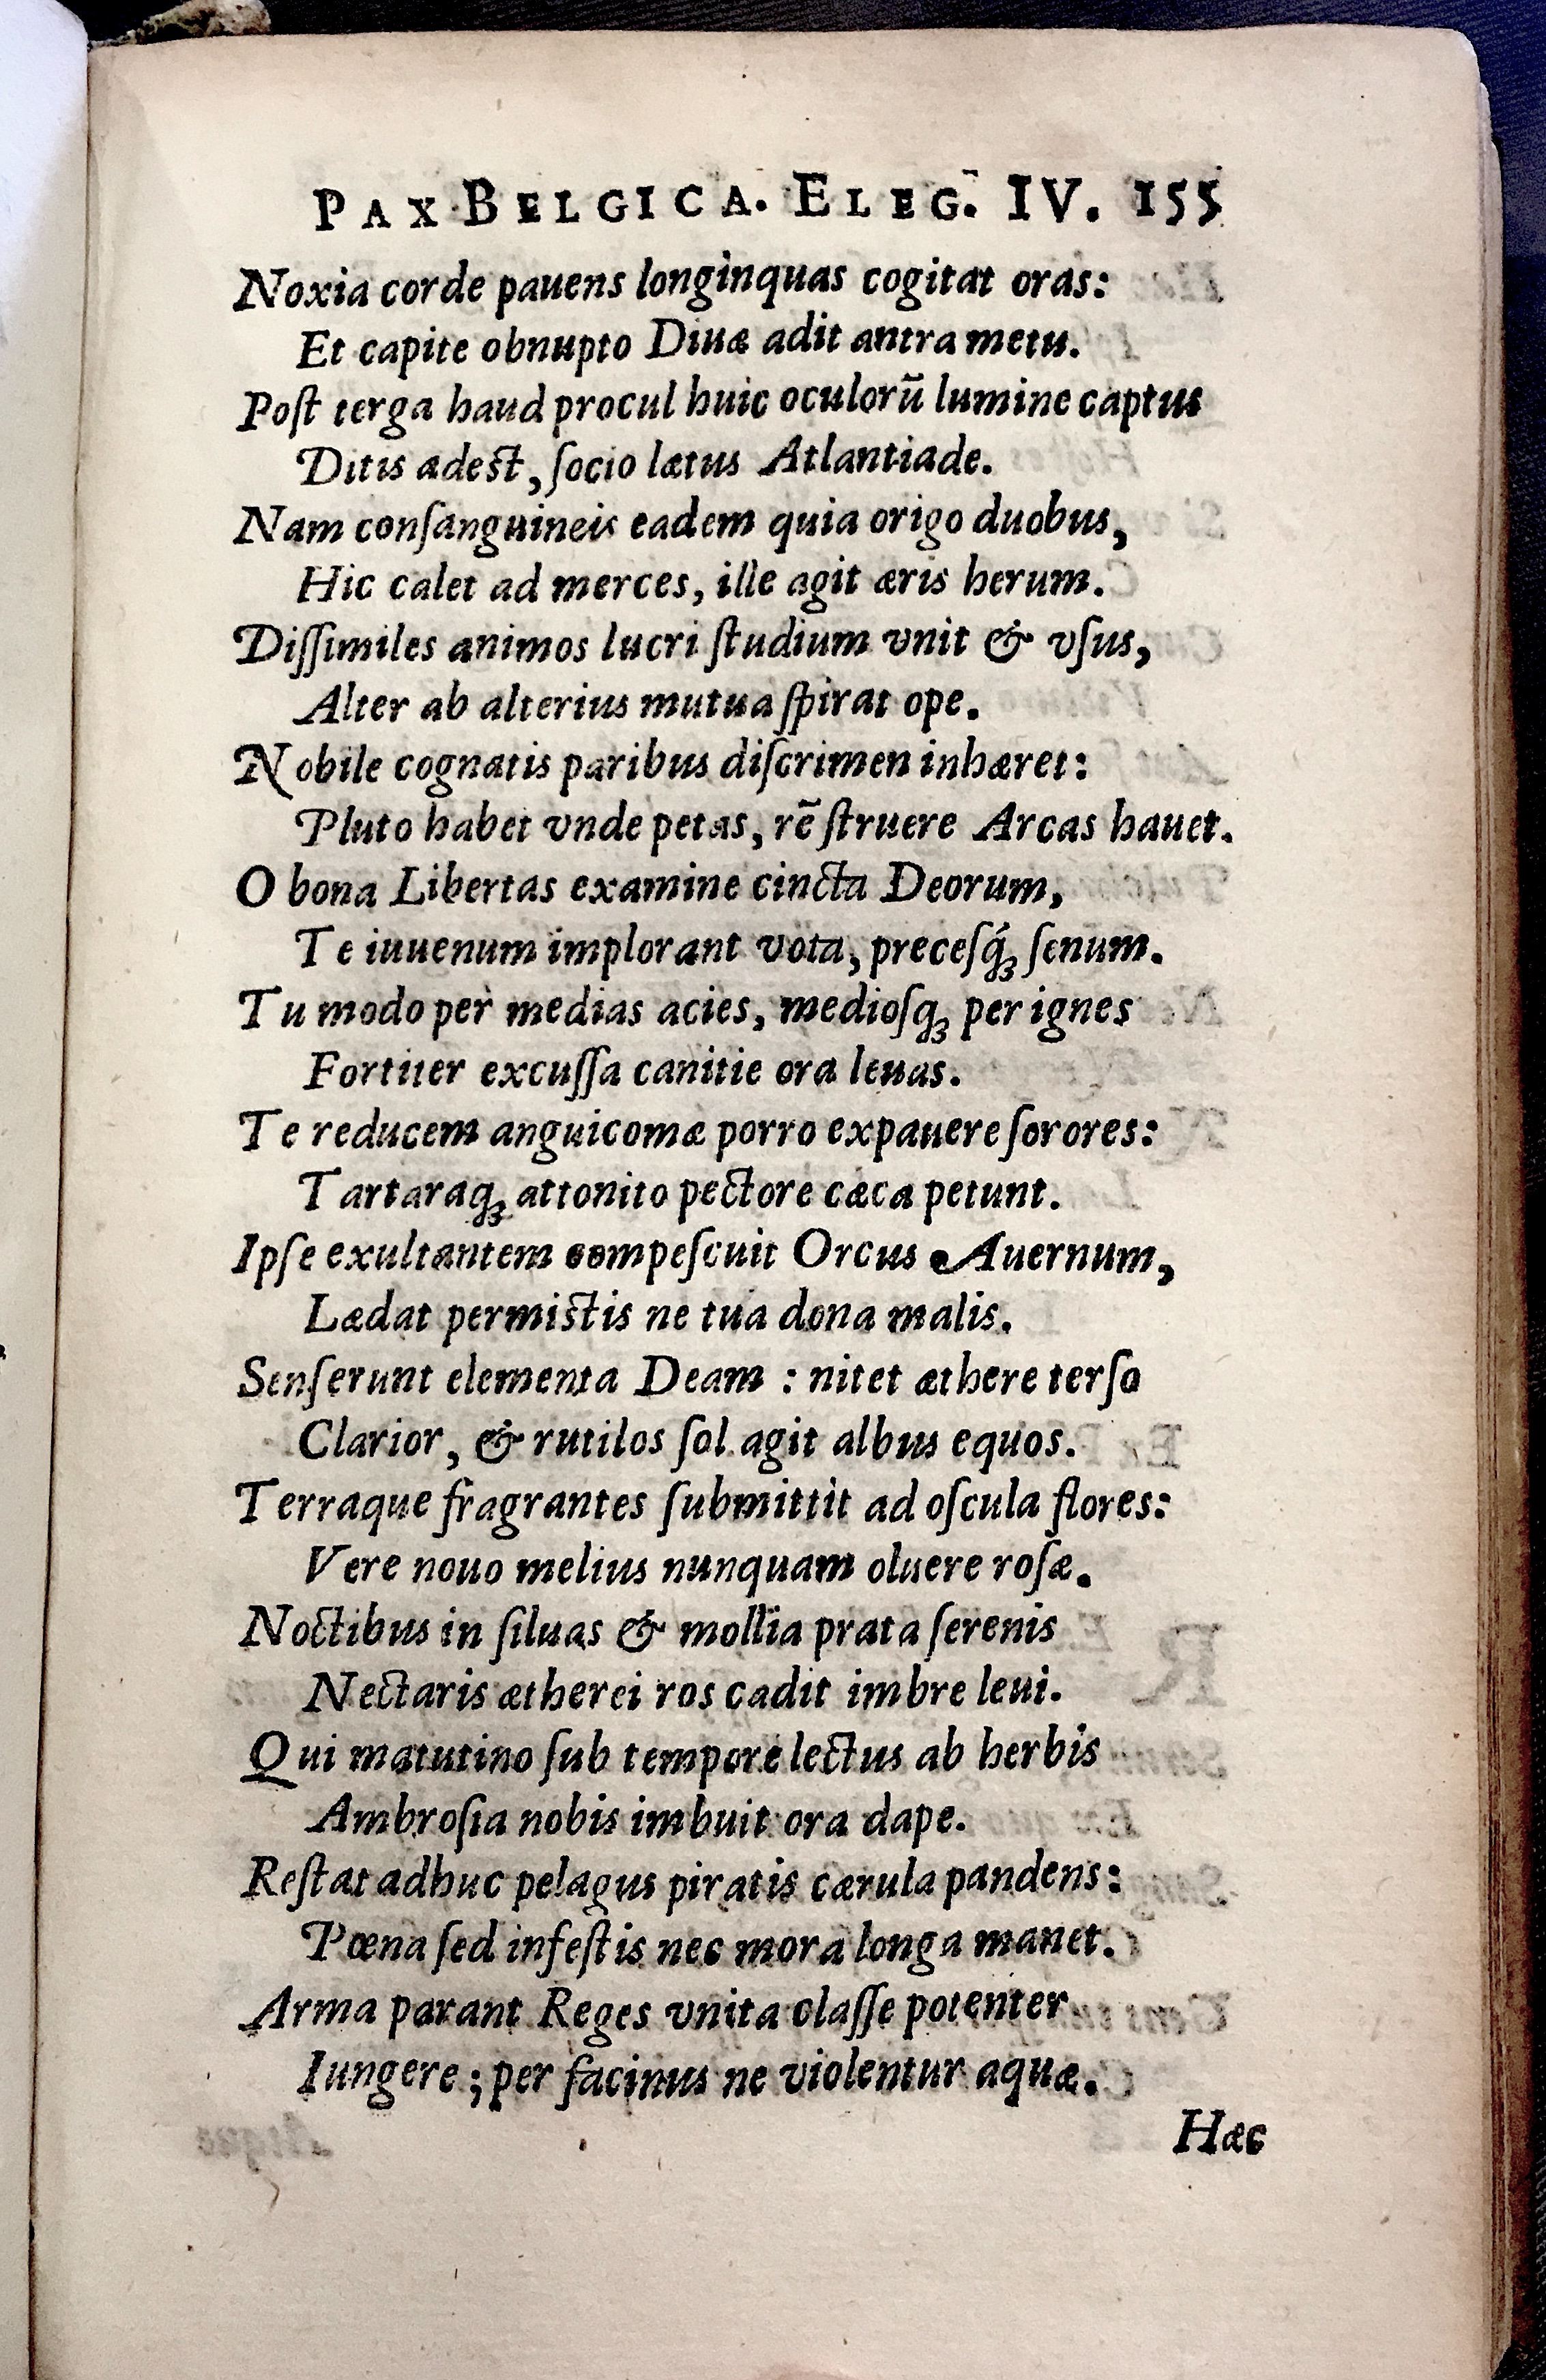 PAX BELGICA. ELEG. IV. 155
Noxia corde pauens longinquas cogitat oras:
Et capite obnupto Diuæ adit antra metu.
Poſt terga haud procul huic oculorū lumine captus
Ditis adeſt, ſocio lætus Atlantiade.
Nam conſanguineis eadem quia origo duobus,
Hic calet ad merces, ille agit æris herum.
Diſſimiles animos lucri ſtudium vnit & vſus,
Alter ab alterius mutua ſpirat ope.
Nobile cognatis paribus diſcrimen inhæret:
Pluto habet vnde petas, rē ſtruere Arcas hauet.
O bona Libertas examine cincta Deorum,
Te iuuenum implorant vota, preceſq́ꝫ ſenum.
Tu modo per medias acies, medioſqꝫ per ignes
Fortiter excuſſa canitie ora leuas.
Te reducem anguicomæ porro expauere ſorores:
Tartaraqꝫ attonito pectore cæca petunt.
Ipſe exultantem compeſcuit Orcus Auernum,
Lædat permiſtis ne tua dona malis.
Senſerunt elementa Deam : nitet æthere terſo
Clarior, & rutilos ſol agit albus equos.
Terraque fragrantes ſubmittit ad oſcula flores:
Vere nouo melius nunquam oluere roſæ.
Noctibus in ſiluas & mollia prata ſerenis
Nectaris ætherei ros cadit imbre leui.
Qui matutino ſub tempore lectus ab herbis
Ambroſia nobis imbuit ora dape.
Reſtat adhuc pelagus piratis cærula pandens:
Pœna ſed infeſtis nec mora longa manet.
Arma parant Reges vnita claſſe potenter
Iungere ; per facinus ne violentur aquæ.
Hæc